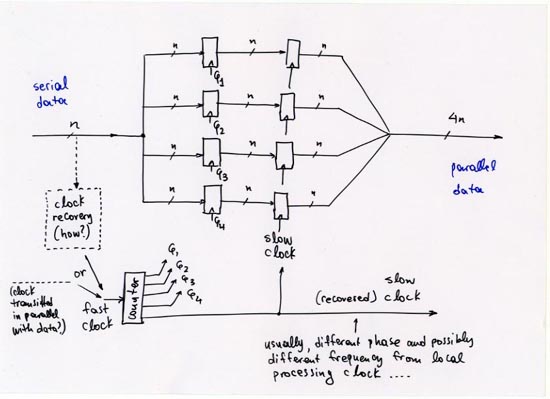 n
n
n
φ1
serial
data
n
n
n
n
φ2
4n
n
n
n
φ3
parallel
data
n
n
n
φ4
clock
recovery
(how?)
slow
clock
or
φ1
φ2
φ3
φ4
(clock
transmitted
in parallel
with data?)
fast
clock
counter
slow
(recovered) clock
usually, different phase and possibly
different frequency from local
processing clock ....